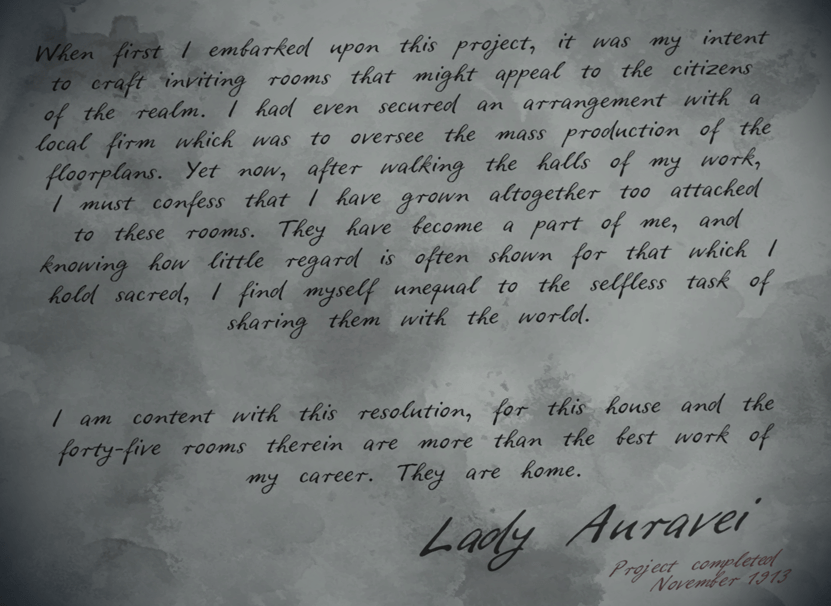 When first I embarked upon this project, it was my intent
to craft inviting rooms that might appeal to the citizens
of the realm. I had even secured an arrangement with a
local firm which was to oversee the mass production of the
floorplans. Yet now, after walking the halls of my work,
I must confess that I have grown altogether too attached
to these rooms. They have become a part of me, and
knowing how little regard is often shown for that which I
hold sacred, I find myself unequal to the selfless task of
sharing them with the world.
I am content with this resolution, for this house and the
forty-five rooms therein are more than the best work of
my career. They are home.
Lady Auravei
Project completed
November 1913